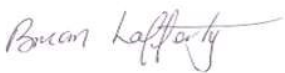 Brian Lafferty